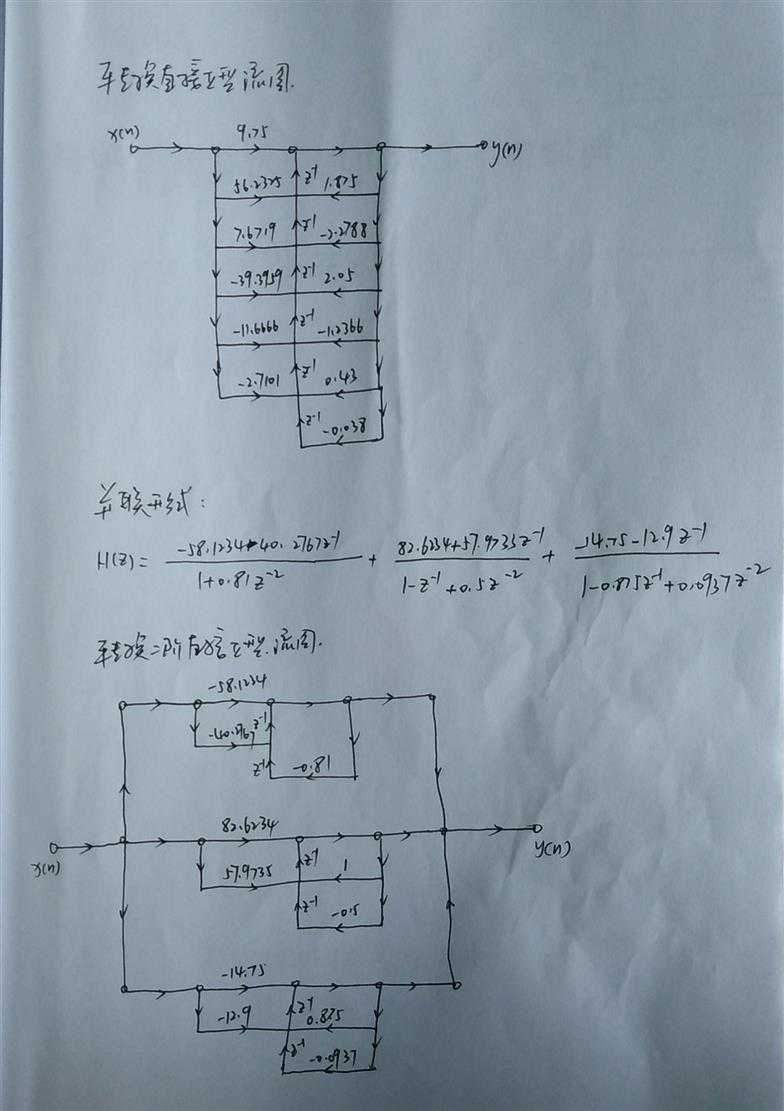 转换直接II型流图.
x(n) 9.75 y(n)
56.2325 z⁻¹ 1.875
7.6719 z⁻¹ -2.2788
-39.3959 z⁻¹ 2.05
-11.6666 z⁻¹ -1.2366
-2.7101 z⁻¹ 0.43
z⁻¹ -0.038
并联形式:
H(z) = (-58.1234-40.2767z⁻¹)/(1+0.81z⁻²) + (82.6234+57.9735z⁻¹)/(1-z⁻¹+0.5z⁻²) + (-14.75-12.9z⁻¹)/(1-0.875z⁻¹+0.0937z⁻²)
转换二阶直接II型流图.
-58.1234
-40.2767 z⁻¹
z⁻¹ -0.81
82.6234
x(n) y(n)
57.9735 z⁻¹ 1
z⁻¹ -0.5
-14.75
-12.9 z⁻¹ 0.875
z⁻¹ -0.0937